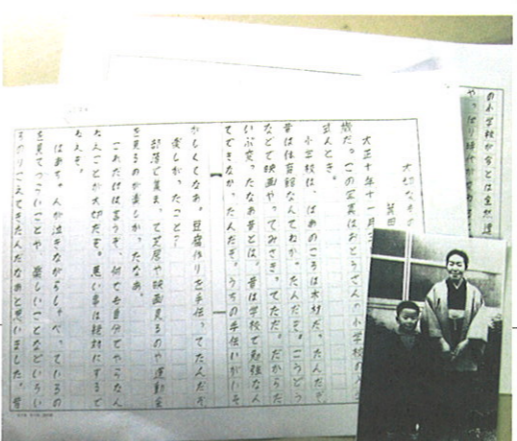 の小学校が今とは全然違
やっぱり時代が変わ
大切なもの
黄田
大正十年十一月
歳だ。この写真はおとうさんの小学校の入
学んとき。
小学校は、ばあのころは木材だったんだぞ。
昔は体育館なんてねがったんだぞ。こうどう
などで映画やってみさぎってただ。だからた
いぶ変ったなあ昔とは。昔は学校で勉強なん
てできなかったんだぞ。うちの手伝いがいそ
がしくてなあ。豆腐作りを手伝ってたんだぞ。
楽しかったこと?
部落で集まって芝居や映画見るのや運動会
を見るのが楽しかったなあ。
これだけは言うぞ、何でも自分でやらなん
ねえことが大切だぞ。悪い事は絶対にするで
ねえぞ。
ばあちゃんが泣きながらしゃべっているの
を見てつらいことや、楽しいことなどいろい
ろのりこえてきたんだなあと思いました。昔